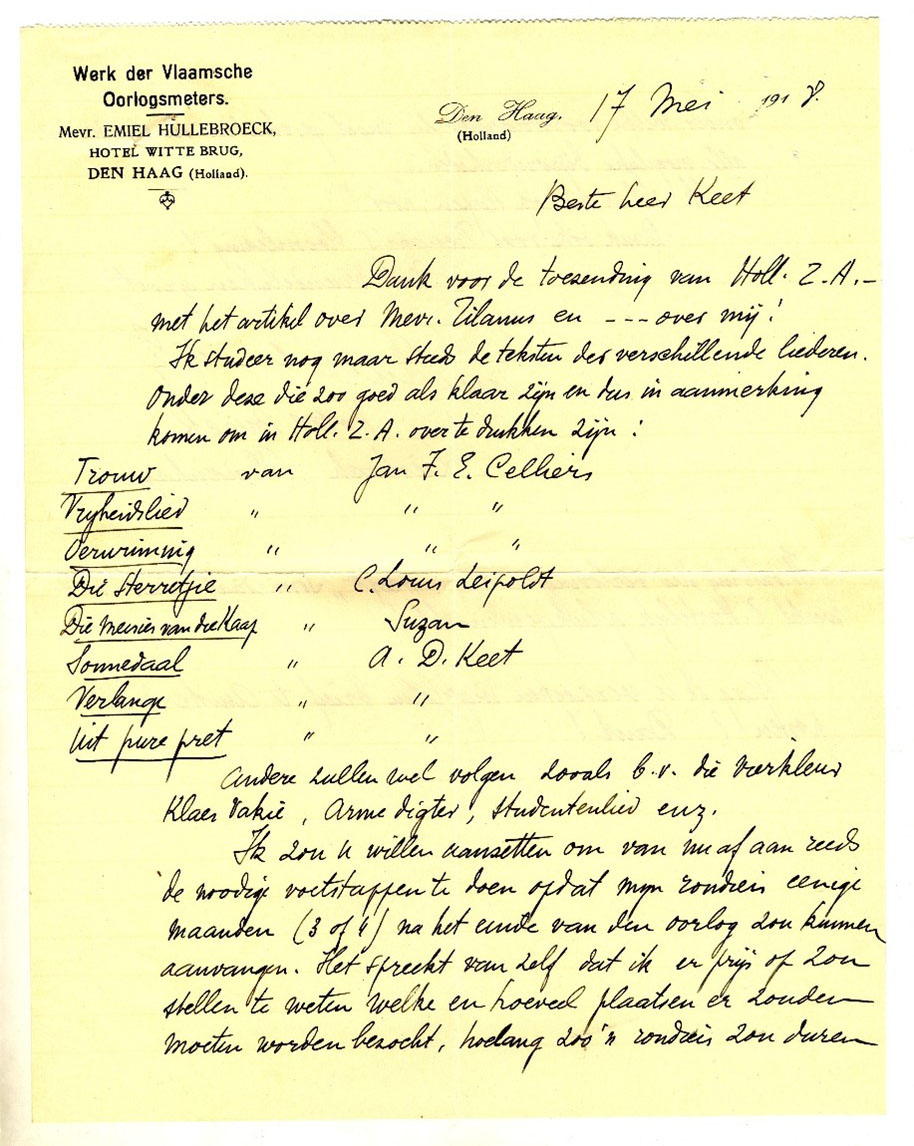 Werk der Vlaamsche
Oorlogsmeters.
Mevr. EMIEL HULLEBROECK,
HOTEL WITTE BRUG,
DEN HAAG (Holland).
Den Haag, 17 Mei 1918.
(Holland)
Beste heer Keet
Dank voor de toezending van Holl. Z. A. –
met het artikel over Mevr. Tilanus en --- over mij!
Ik studeer nog maar steeds de teksten der verschillende liederen.
Onder deze die zoo goed als klaar zijn en dus in aanmerking
komen om in Holl. Z. A. over te drukken zijn:
Trouw van Jan F. E. Celliers
Vryheidslied " " "
Oorwinning " " "
Die Sterretjie " C. Louis Leipoldt
Die Meisies van die Kaap " Suzan
Sonnedaal " A. D. Keet
Verlange " "
Uit pure pret " "
Andere zullen wel volgen zooals b.v. die
Klaas Vakie, Arme digter, Studentenlied enz.
Ik zou u willen aanzetten om van nu af aan reeds
de noodige voetstappen te doen opdat mijn rondreis eenige
maanden (3 of 4) na het einde van den oorlog zou kunnen
aanvangen. Het spreekt van zelf dat ik er prijs op zou
stellen te weten welke en hoeveel plaatsen er zouden
moeten worden bezocht, hoelang zoo'n rondreis zou duren